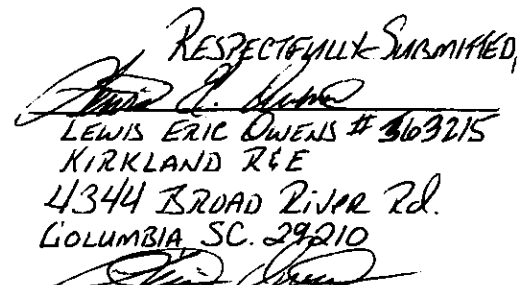 RESPECTFULLY SUBMITTED,
LEWIS ERIC OWENS # 363215
KIRKLAND R&E
4344 BROAD RIVER Rd.
COLUMBIA, SC. 29210